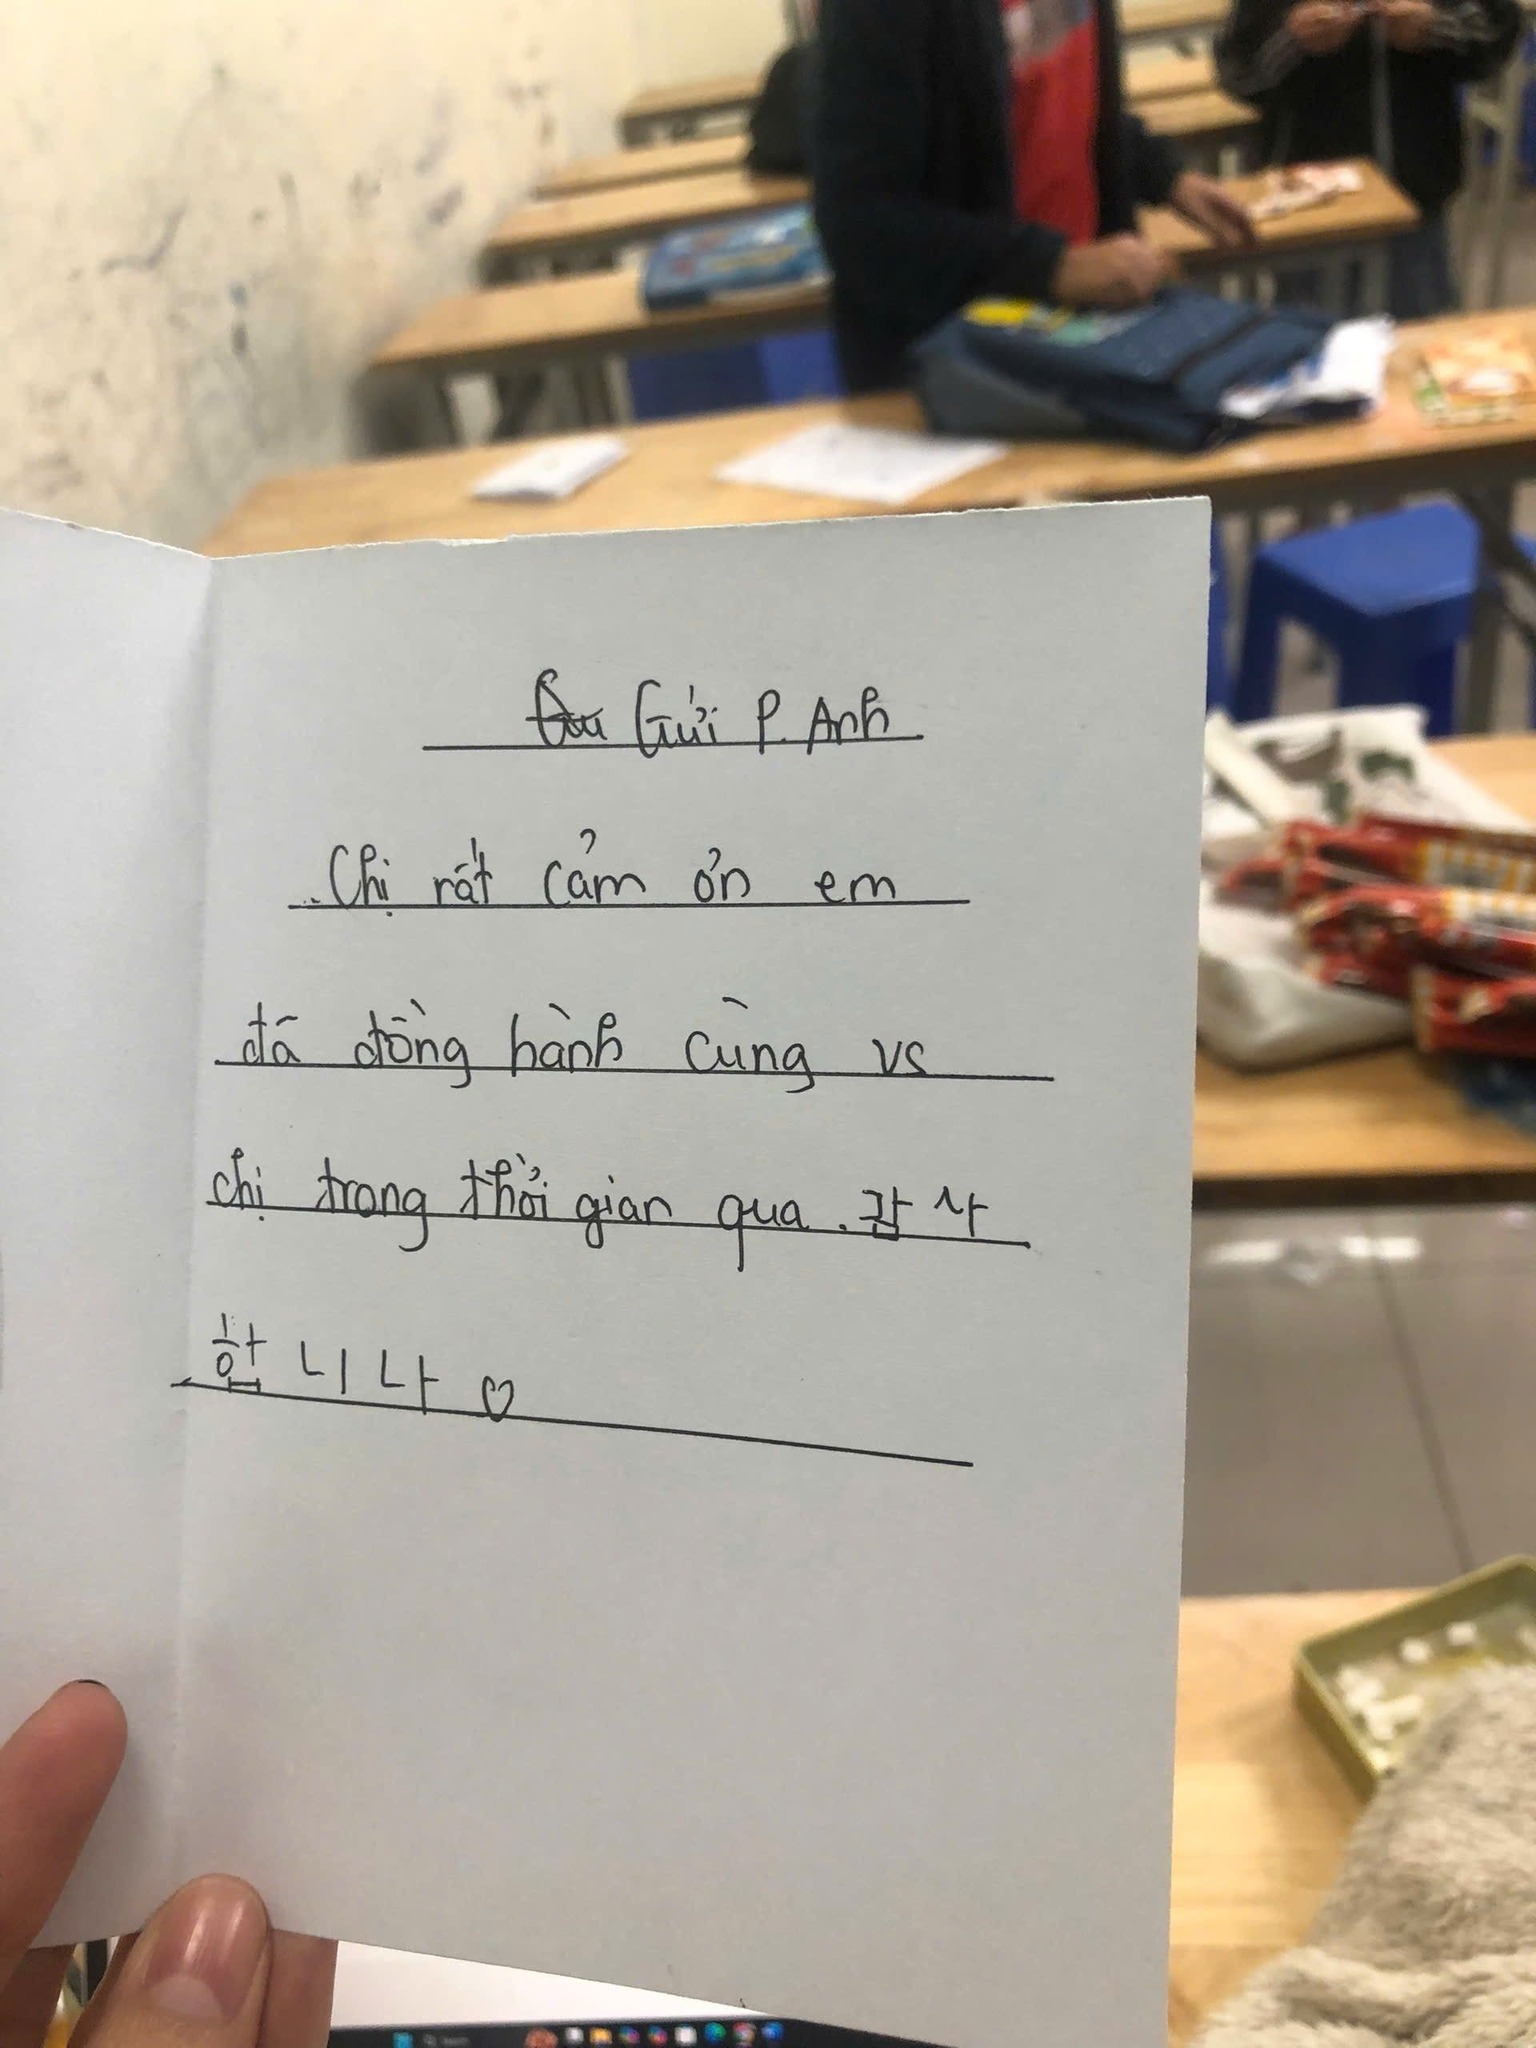 Gửi P. Anh
Chị rất cảm ơn em
đã đồng hành cùng vs
chị trong thời gian qua. 감사
합니나 ♡